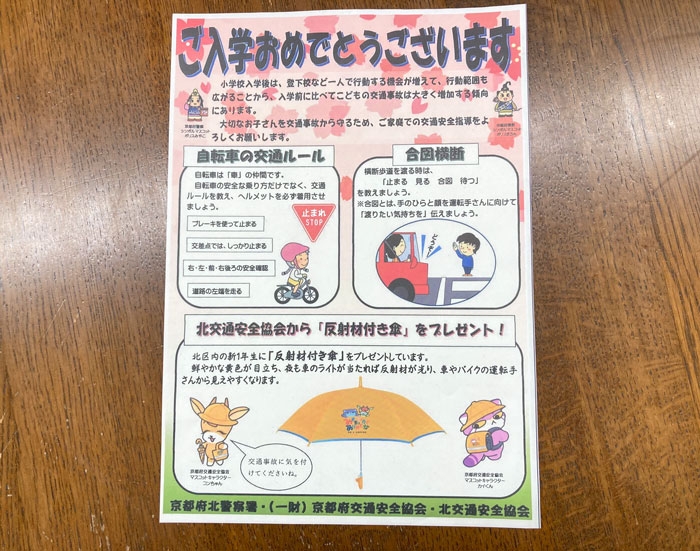 ご入学おめでとうございます
小学校入学後は、登下校など一人で行動する機会が増えて、行動範囲も
広がることから、入学前に比べてこどもの交通事故は大きく増加する傾向
にあります。
大切なお子さんを交通事故から守るため、ご家庭での交通安全指導をよ
ろしくお願いします。
京都府警察
シンボルマスコット
ポリスみやこ
自転車の交通ルール
自転車は「車」の仲間です。
自転車の安全な乗り方だけでなく、交通
ルールを教え、ヘルメットを必ず着用させ
ましょう。
ブレーキを使って止まる
交差点では、しっかり止まる
右・左・前・右後ろの安全確認
道路の左端を走る
止まれ
STOP
合図横断
横断歩道を渡る時は、
「止まる 見る 合図 待つ」
を教えましょう。
※合図とは、手のひらと顔を運転手さんに向けて
「渡りたい気持ちを」伝えましょう。
北交通安全協会から「反射材付き傘」をプレゼント!
北区内の新1年生に「反射材付き傘」をプレゼントしています。
鮮やかな黄色が目立ち、夜も車のライトが当たれば反射材が光り、車やバイクの運転手
さんから見えやすくなります。
交通事故に気を付
けてくださいね。
京都府交通安全協会
マスコットキャラクター
コンちゃん
京都府交通安全協会
マスコットキャラクター
カイくん
京都府北警察署・(一財)京都府交通安全協会・北交通安全協会